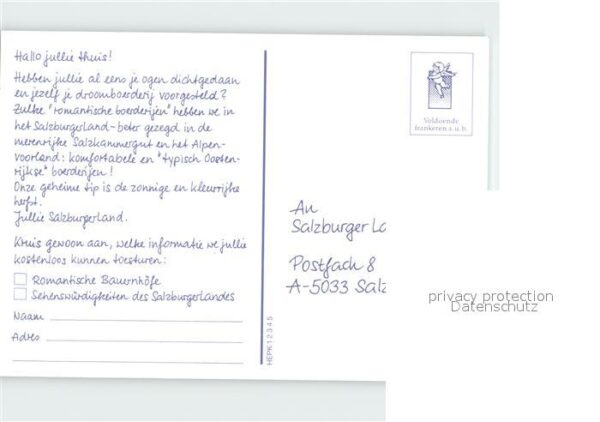 Hallo jullie thuis!
Hebben jullie al eens je ogen dichtgedaan
en jezelf je droomboerderij voorgesteld?
Zulke "romantische boerderijen" hebben we in
het Salzburgerland-beter gezegd in de
merenrijke Salzkammergut en het Alpen-
voorland: komfortabele en "typisch Oosten-
rijkse" boerderijen!
Onze geheime tip is de zonnige en kleurrijke
herfst.
Jullie Salzburgerland.
Kruis gewoon aan, welke informatie we jullie
kostenloos kunnen toesturen:
Romantische Bauernhöfe
Sehenswürdigkeiten des Salzburgerlandes
Naam
Adres
HEPK12345
Voldoende
frankeren a.u.b.
An
Salzburger La
Postfach 8
A-5033 Salz
privacy protection
Datenschutz